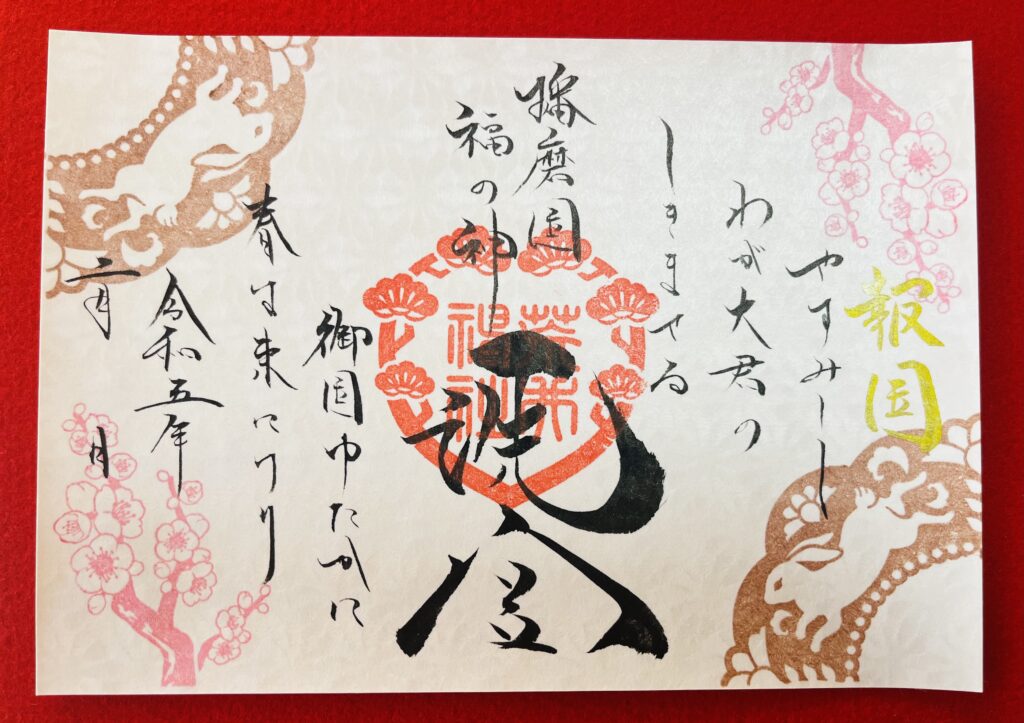 報国
やすみしし
わが大君の
しきませる
播磨国
福の神
御国ゆたかに
春は来にけり
令和五年
二月